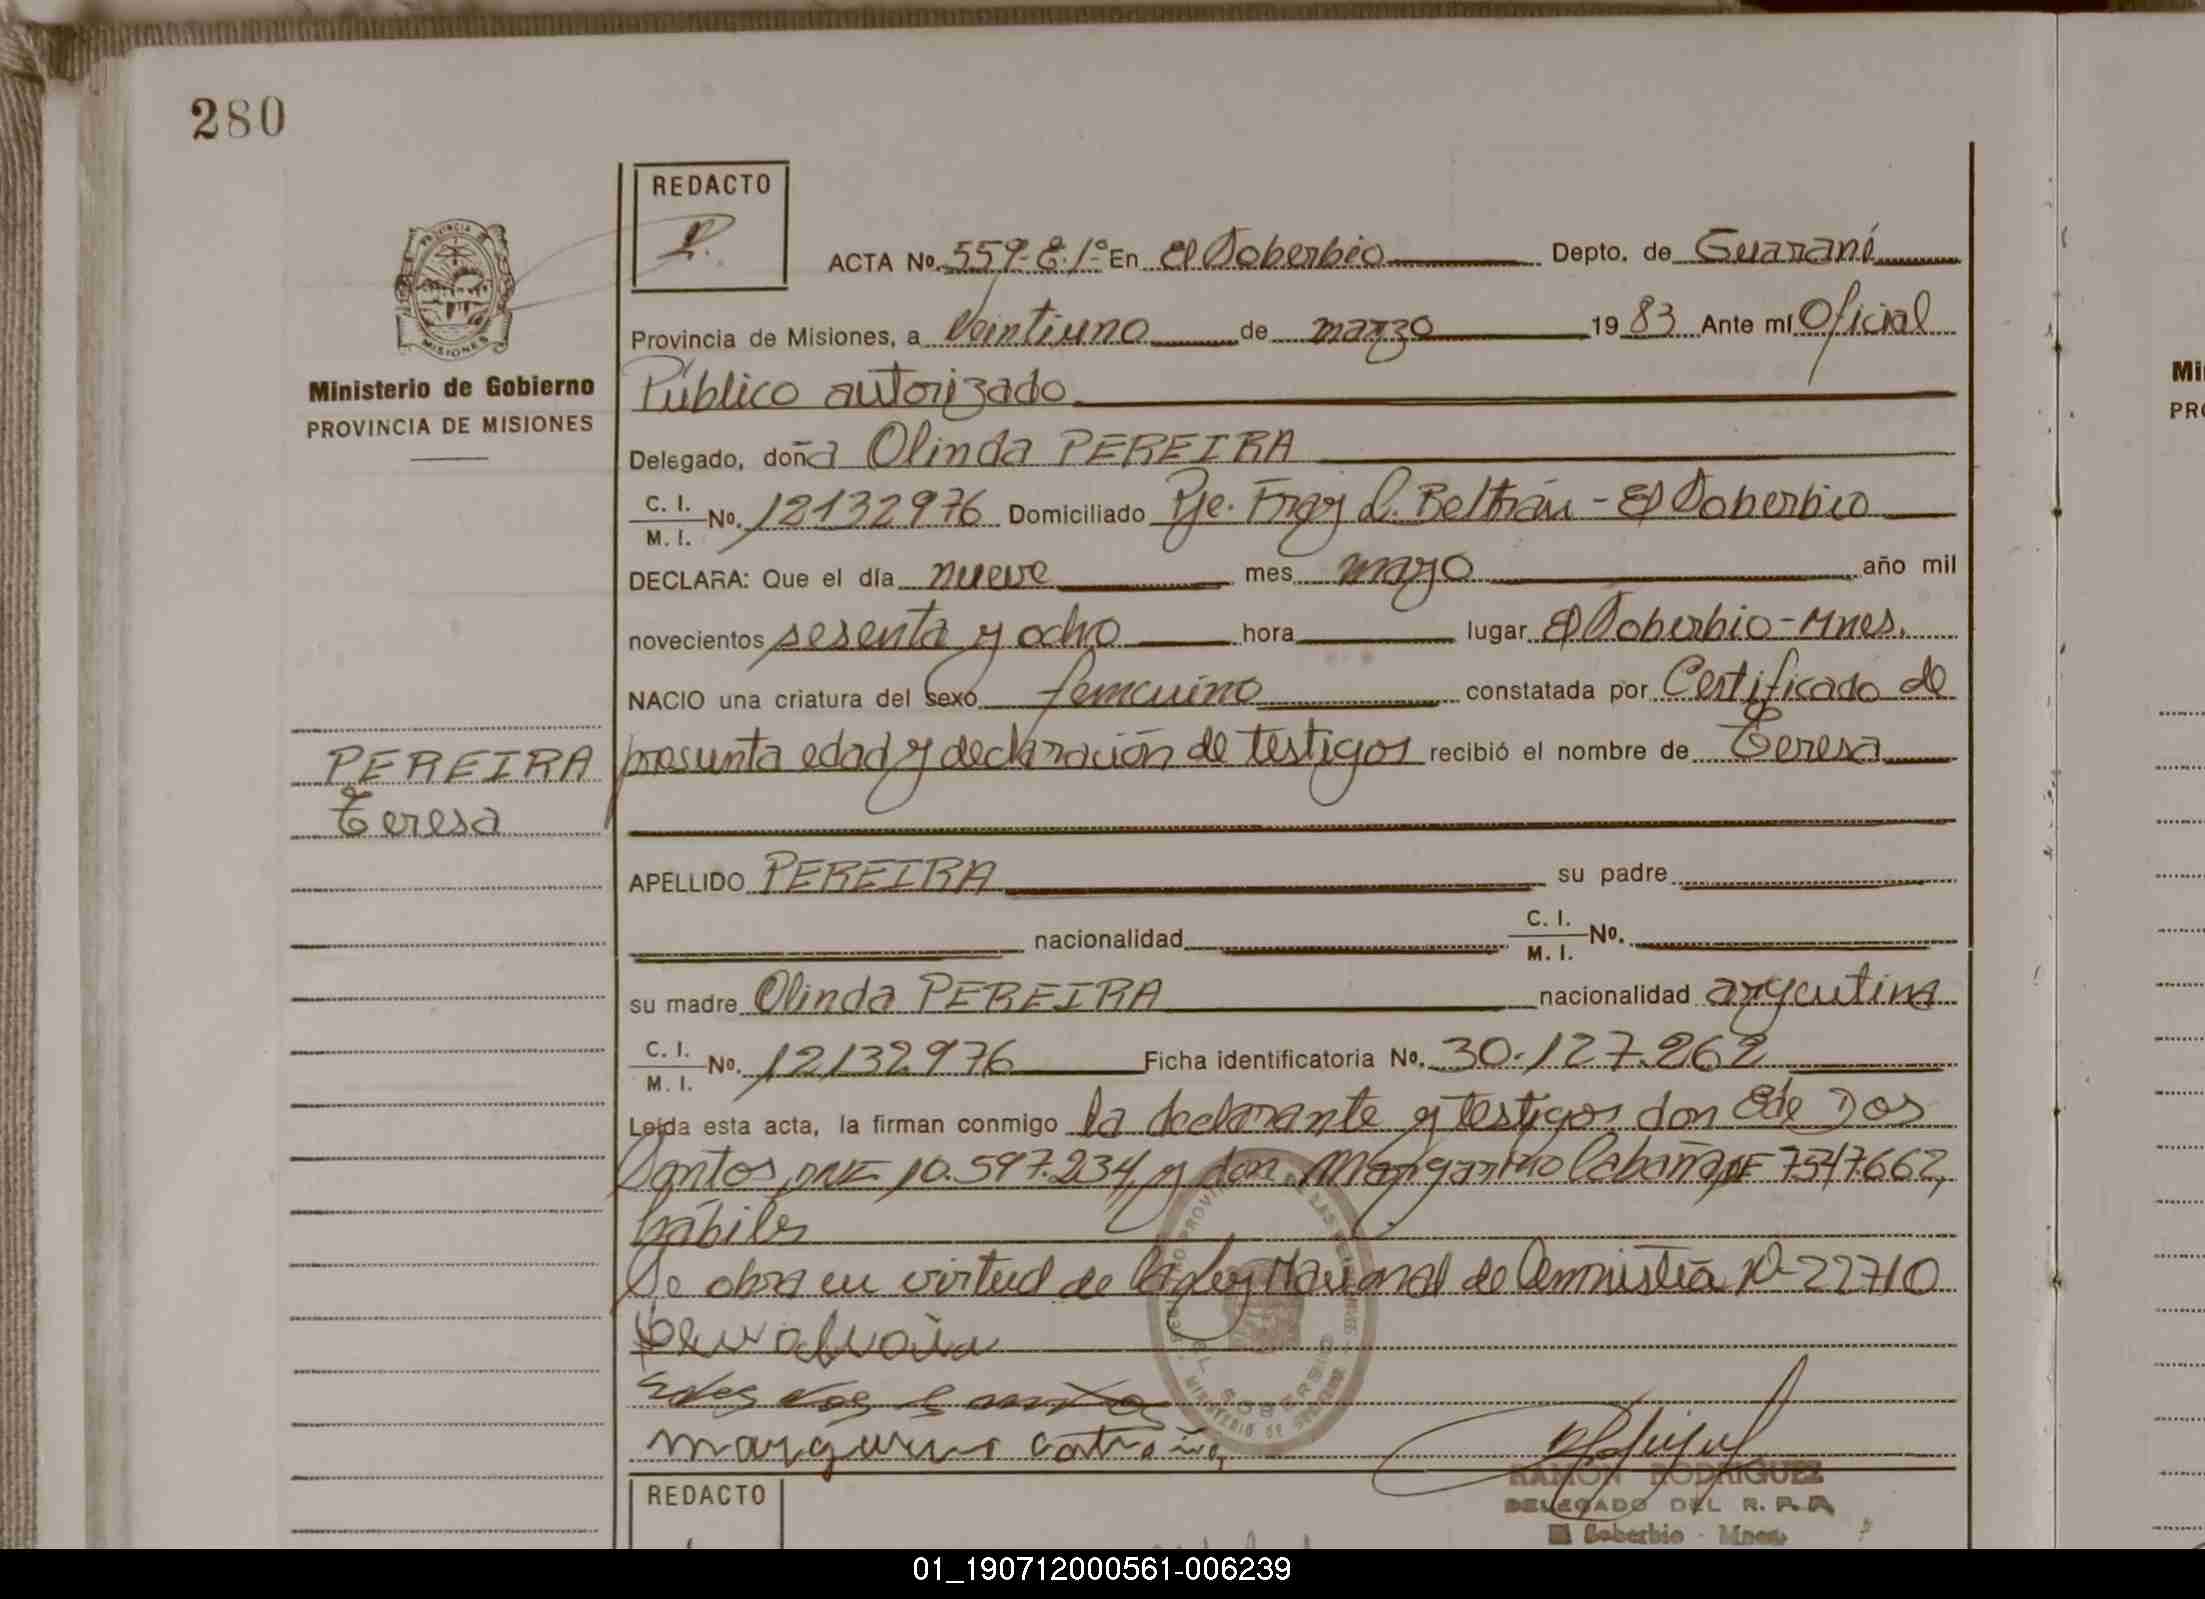 280
REDACTO
ACTA No. 559-E.1º- En El Soberbio Depto. de Guaraní
PROVINCIA DE MISIONES
Provincia de Misiones, a Veintiuno de marzo 1983 Ante mí Oficial
Ministerio de Gobierno
PROVINCIA DE MISIONES
Público autorizado
Delegado, doña Olinda PEREIRA
C. I. M. I. No. 12132976 Domiciliado Pje. Fray L. Beltrán - El Soberbio
DECLARA: Que el día nueve mes mayo año mil
novecientos sesenta y ocho hora lugar El Soberbio - Mnes.
NACIO una criatura del sexo femenino constatada por Certificado de
presunta edad y declaración de testigos recibió el nombre de Teresa
PEREIRA
Teresa
APELLIDO PEREIRA su padre
nacionalidad C. I. M. I. No.
su madre Olinda PEREIRA nacionalidad argentina
C. I. M. I. No. 12132976 Ficha identificatoria No. 30.127.262
Leída esta acta, la firman conmigo la declarante y testigos don Ede Dos
Santos, DNI 10.597.234, y don Margarino Cabaña 7547.662,
hábiles
Se obra en virtud de la Ley Nacional de Amnistía Nº 22710
RAMON RODRIGUEZ
DELEGADO DEL R. P. A
El Soberbio - Mnes
REDACTO
01_190712000561-006239